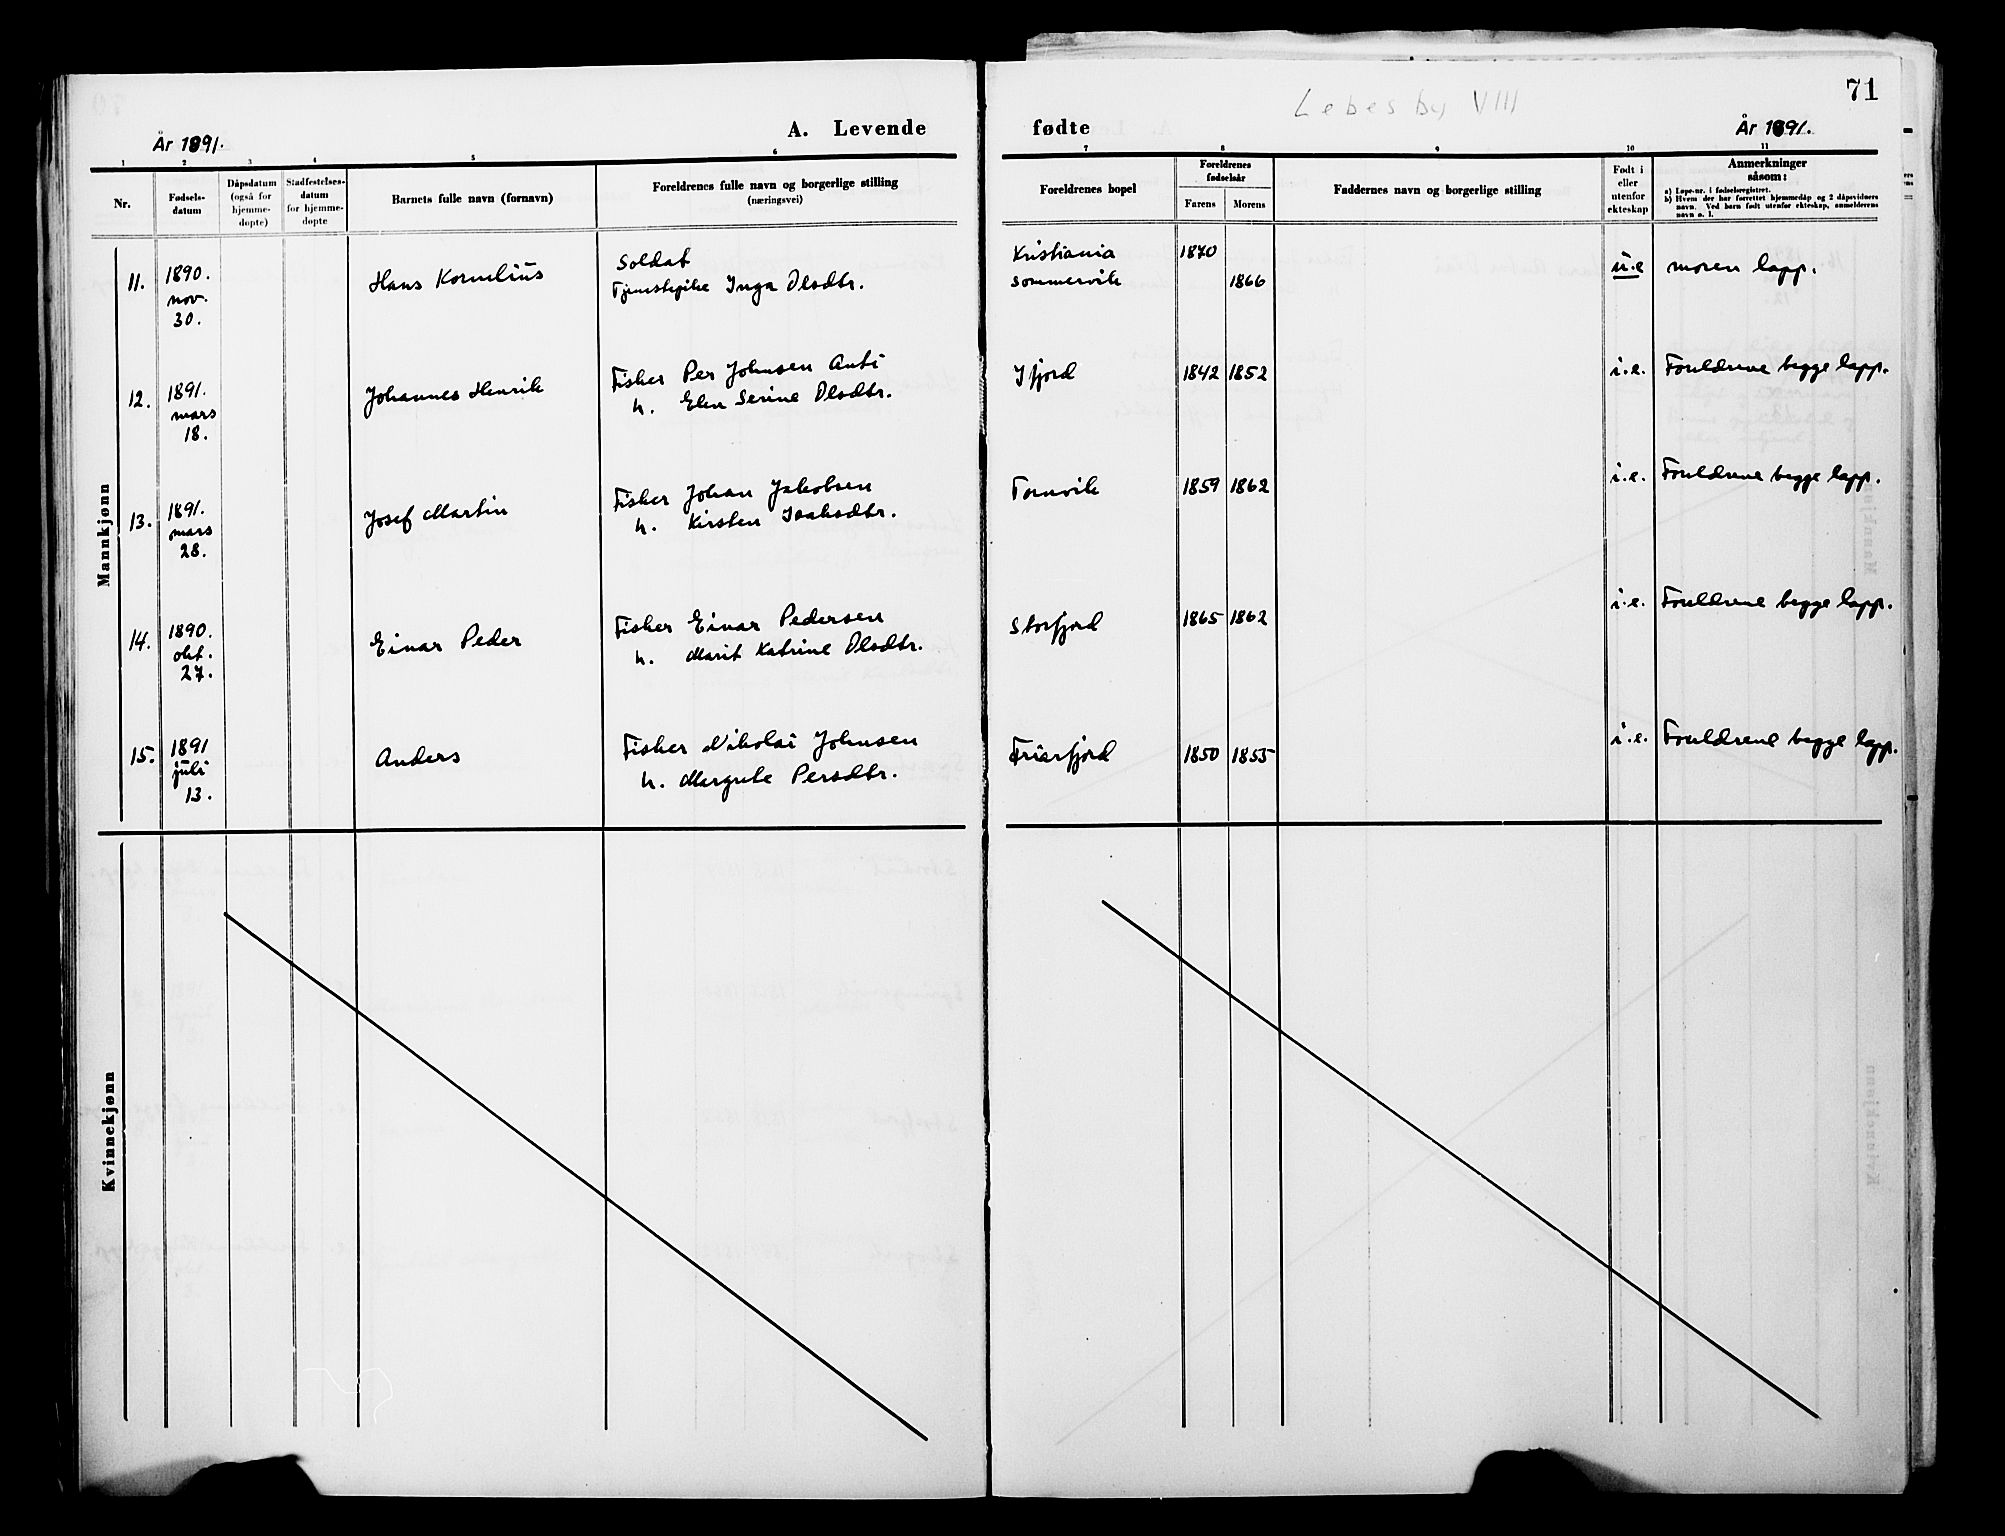 Lebesby VIII
71
År 1891.
A. Levende
fødte
År 1891.
1 2 3 4 5 6 7 8 9 10 11
Nr.
Fødsels-
datum
Dåpsdatum
(også for
hjemme-
døpte)
Stadfestelses-
datum
for hjemme-
døpte
Barnets fulle navn (fornavn)
Foreldrenes fulle navn og borgerlige stilling
(næringsvei)
Foreldrenes bopel
Foreldrenes
fødselsår
Farens Morens
Faddernes navn og borgerlige stilling
Født i
eller
utenfor
ekteskap
Anmerkninger
såsom:
a) Løpe-nr. i fødselsregistret.
b) Hvem der har forrettet hjemmedåp og 2 dåpsvidners
navn. Ved barn født utenfor ekteskap, anmelderens
navn o. l.
Mannkjønn
11.
1890.
nov.
30.
Hans Kornelius
Soldat
Tjenestepike Inga Olsdtr.
Kristiania 1870
Sommervik 1866
u.e moren lapp.
12.
1891.
mars
18.
Johannes Henrik
Fisker Per Johnsen Anti
h. Elen Serine Olsdtr.
Ifjord 1842 1852
i.e. Foreldrene begge lapp.
13.
1891.
mars
28.
Josef Martin
Fisker Johan Jakobsen
h. Kirsten Isaksdtr.
Tornvik 1859 1862
i.e. Foreldrene begge lapp.
14.
1890.
okt.
27.
Einar Peder
Fisker Einar Pedersen
h. Marit Katrine Olsdtr.
Storfjord 1865 1862
i.e. Foreldrene begge lapp.
15.
1891
juli
13.
Anders
Fisker Nikolai Johnsen
h. Margrete Persdtr.
Friarfjord 1850 1855
i.e. Foreldrene begge lapp.
Kvinnekjønn